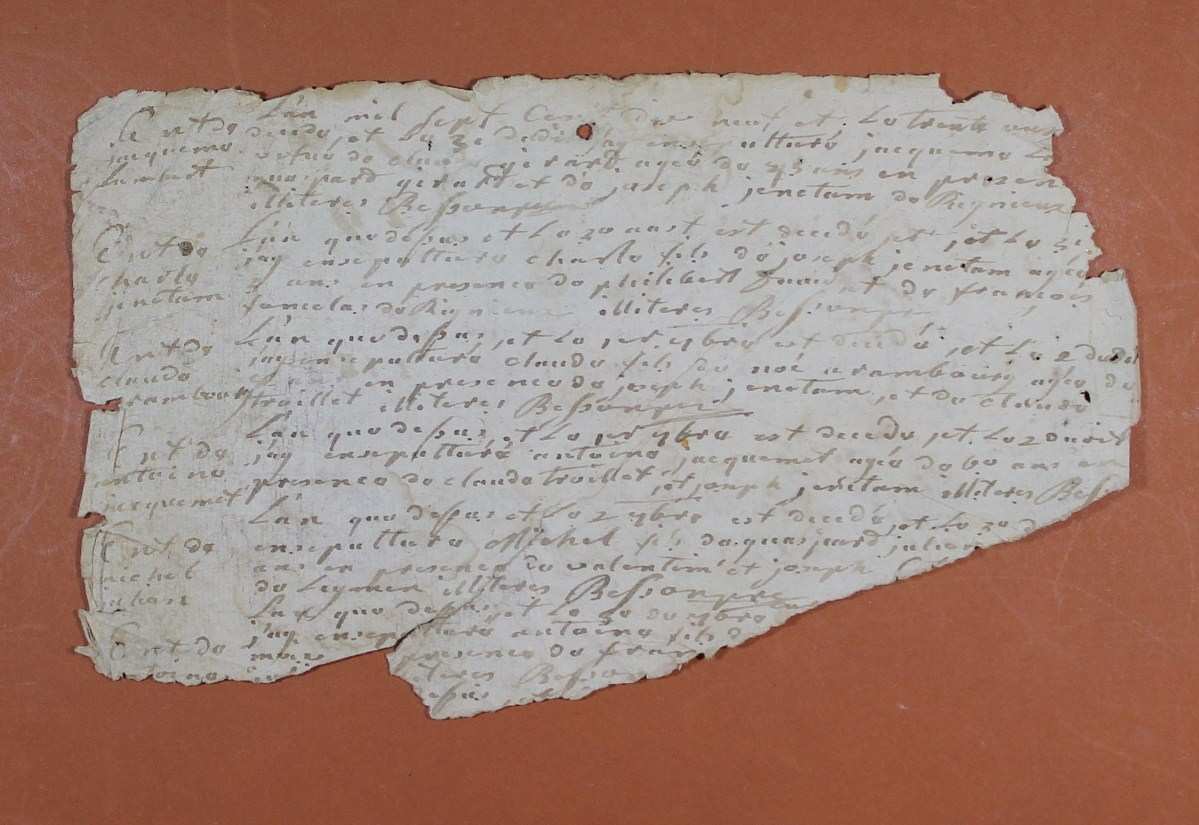 Ent de
jacquema
Lambert
L'an mil sept Cent dix neuf et Le trente
decede, et Le 31 dedit jay ensepulturé jacquema
vefve de claude girard agéé de 75 ans en presen
guaspard girard et de joseph jenetam de Rignieux
illiteres Bessonpre
Ent de
charle
jenetam
L'an que dessus et Le 30 aust est decedé et jet Le 31
jay ensepulturé charle fils de joseph jenetam agéé
2 ans en presence de philibert et de françois
de Rignieux illiteres Bessonpre
Ent de
claude
arambourg
L'an que dessus, et Le per 7bre est decedé, et Le 2 dudit
jay ensepulturé claude fils de noé arambourg agéé de
en presence de joseph jenetam, et de claude
troillet illiteres Bessonpre
Ent de
antoine
jacquemet
L'an que dessus, et Le per 7bre est decedé, et Le 2 dudit
jay ensepulturé antoine jacquemet agéé de 60 ans en
presence de claude troillet, et joseph jenetam illiteres Bess
Ent de
michel
julian
L'an que dessus et Le 2 7bre est decedé, et Le 30 d
ensepulturé Michel fils de guaspard julian
ans en presence de valentin et joseph
de Leymen illiteres Bessonpre
Ent de
antoine
L'an que dessus et Le 30 de 7bre
jay ensepulturé antoine fils d
mois presence de fran
iteres Besson
essus